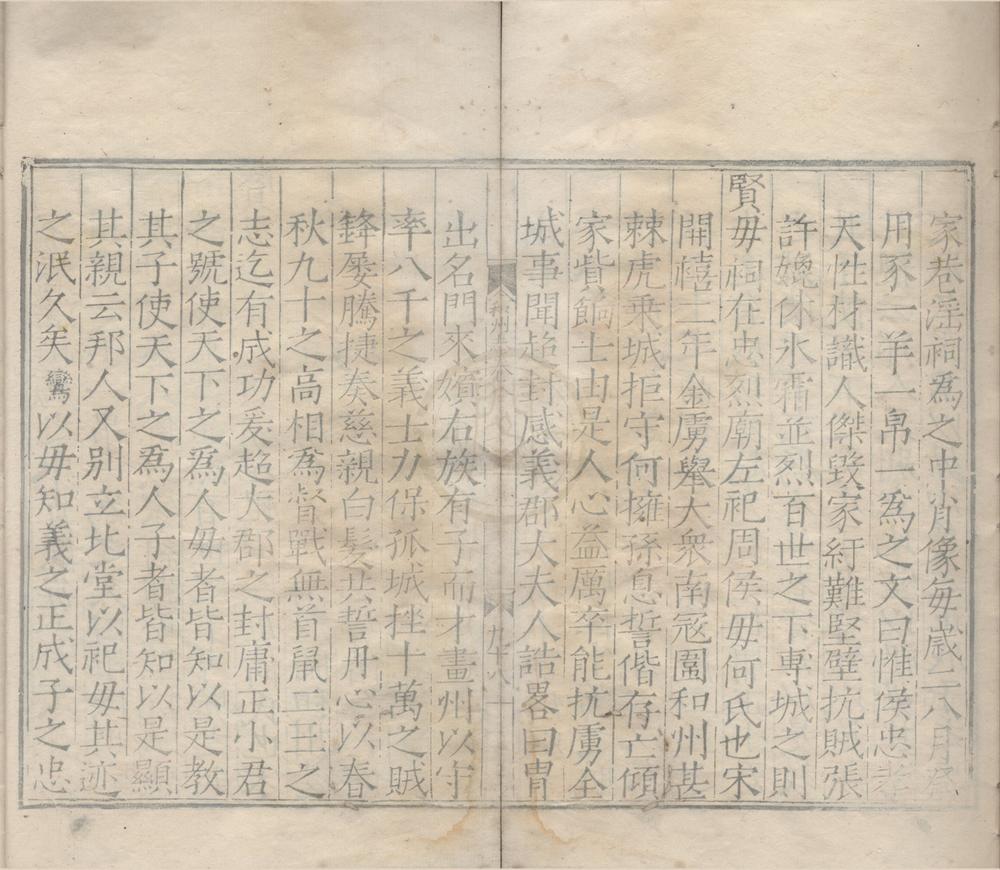 家巷淫祠為之中肖像每歲二八月祭
用豕一羊一帛一為之文曰惟侯忠孝
天性材識人傑毀家紓難堅壁抗賊張
許媲休氷霜並烈百世之下専城之則
賢毋祠在忠烈廟左祀周侯毋何氏也宋
開禧二年金虜舉大衆南冦圍和州甚
棘虎乗城拒守何擁孫息誓偕存亡傾
家貲餉士由是人心益厲卒能抗虜全
城事聞超封感義郡大夫人誥畧曰胄
和州志
九十八
出名門來嬪右族有子而才畫州以守
率八千之義士力保孤城挫十萬之賊
鋒屡騰捷奏慈親白髮共誓丹心以春
秋九十之高相為督戰無首鼠二三之
志迄有成功爰超大郡之封庸正小君
之號使天下之為人毋者皆知以是教
其子使天下之為人子者皆知以是顯
其親云邦人又别立北堂以祀毋其迹
之泯久矣鸞以毋知義之正成子之忠